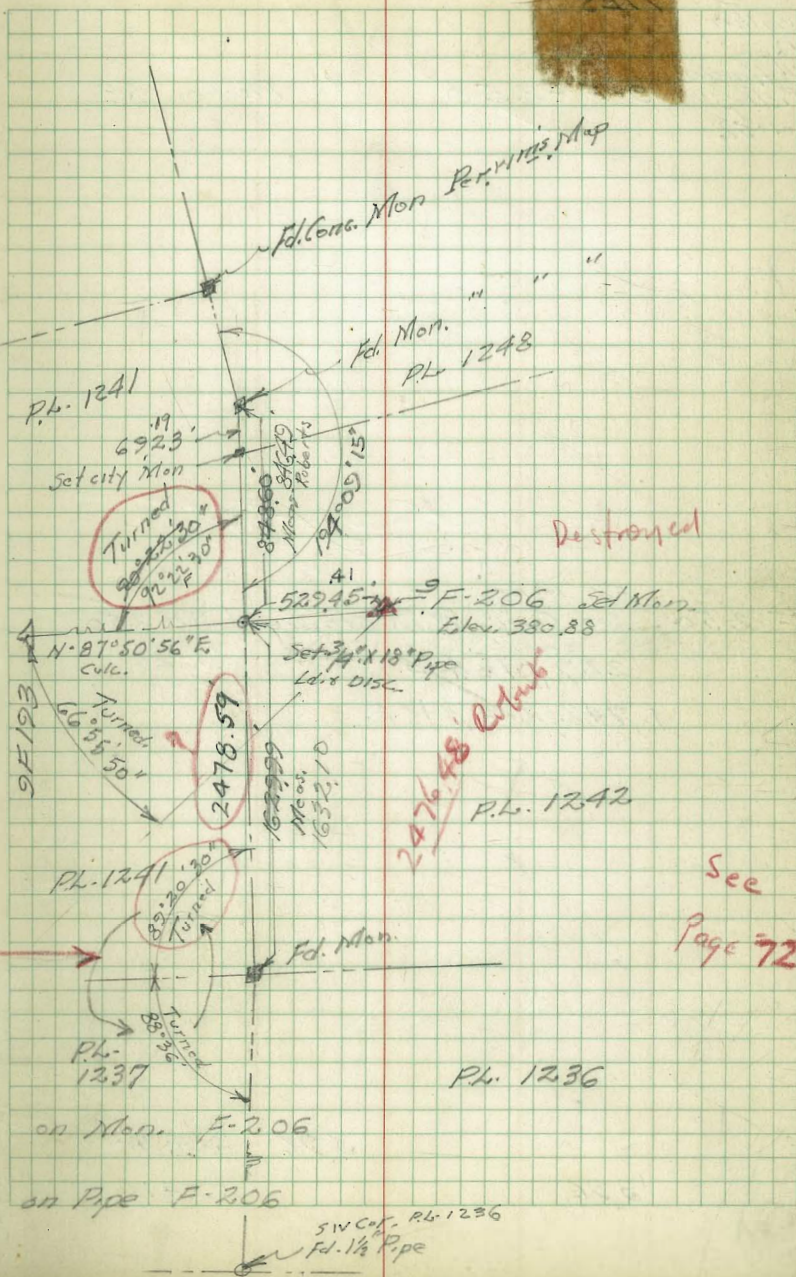 Fd. Conc. Mon Per. Map
Fd. Mon. " " "
P.L. 1248
P.L. 1241
.19
6923'
Set city Mon
84860'
Meas. 846.49
Roberts
194°09'15"
Turned
90°22'30"
92°22'30"
F
Destroyed
.41
529.45
F-206 Set Mon.
Elev. 380.88
N-87°50'56"E
Calc.
Set 3/4" x 18" Pipe
Ld. & Disc.
9F193
Turned
66°55'50"
?
2478.59
162999
Meas.
1632.10
2476.48' Roberts
P.L. 1242
P.L. 1241
89°20'30"
Turned
See
Page 72
Fd. Mon.
Turned
88°36'
P.L.
1237
P.L. 1236
on Mon. F-206
on Pipe F-206
SW Cor. P.L. 1236
Fd. 1½" Pipe